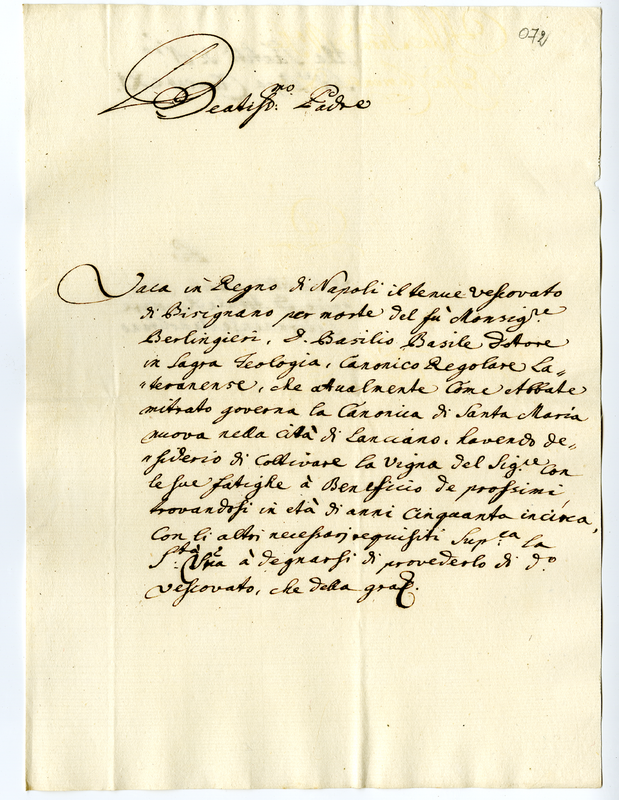 072
Beatiss.mo Padre
Vaca in Regno di Napoli il tenue Vescovato
di Bisignano per morte del fù Monsig.re
Berlingieri, D. Basilio Basile Dttore
in Sagra Teologia, Canonico Regolare La=
=teranense, che atualmente Come Abbate
mitrato governa la Canonica di Santa Maria
nuova nella Cità di Lanciano, havendo de=
nsiderio di Coltivare la Vigna del Sig.re Con
le sue fatighe à Beneficio de prossimi
trovandosi in età di anni Cinquanta incirca,
Con li altri necessarj requisiti Sup.ca la
S.tà Vra à degnarsi di provederlo di d.o
Vescovato, che della graz.